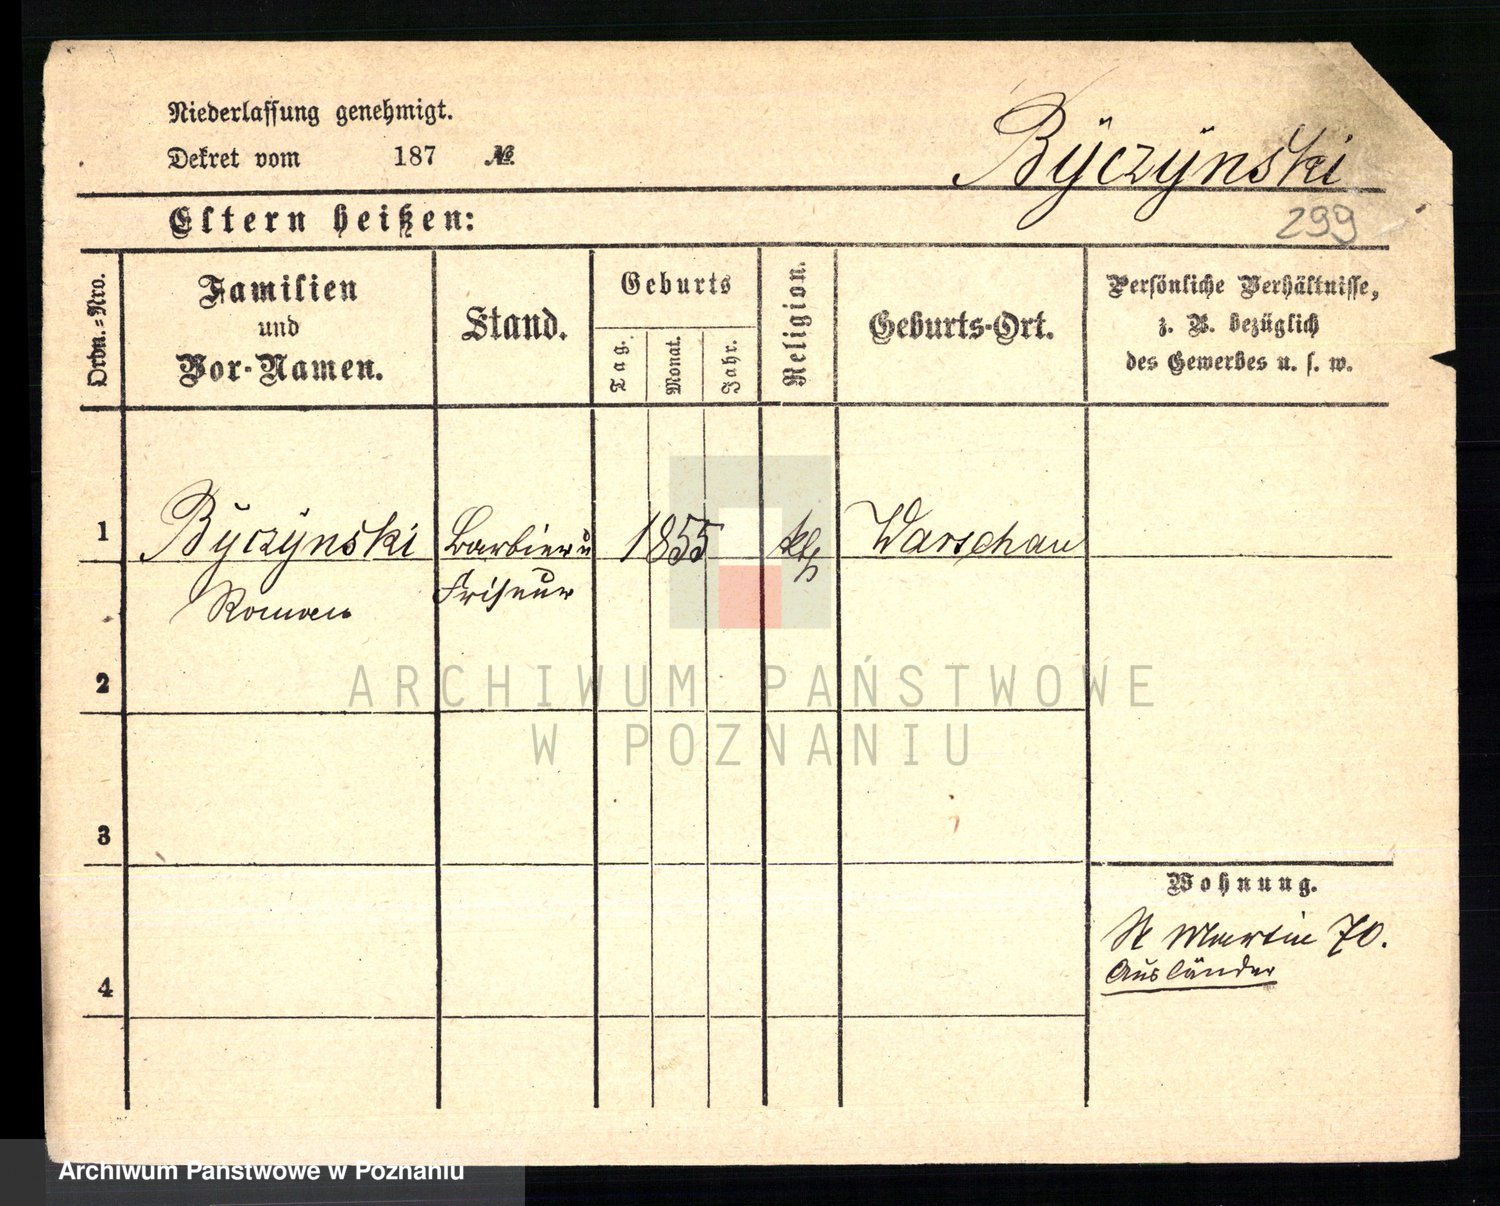 Niederlassung genehmigt.
Dekret vom 187 №
Byczynski
Eltern heißen:
299
Ordn.=Nro.
Familien
und
Vor-Namen.
Stand.
Geburts
Tag.
Monat.
Jahr.
Religion.
Geburts-Ort.
Persönliche Verhältnisse,
z. B. bezüglich
des Gewerbes u. s. w.
1 Byczynski Barbier u 1855 kth Warschau
Roman Friseur
2
3
4
Wohnung.
St Martin 70.
Ausländer
ARCHIWUM PAŃSTWOWE
W POZNANIU
Archiwum Państwowe w Poznaniu